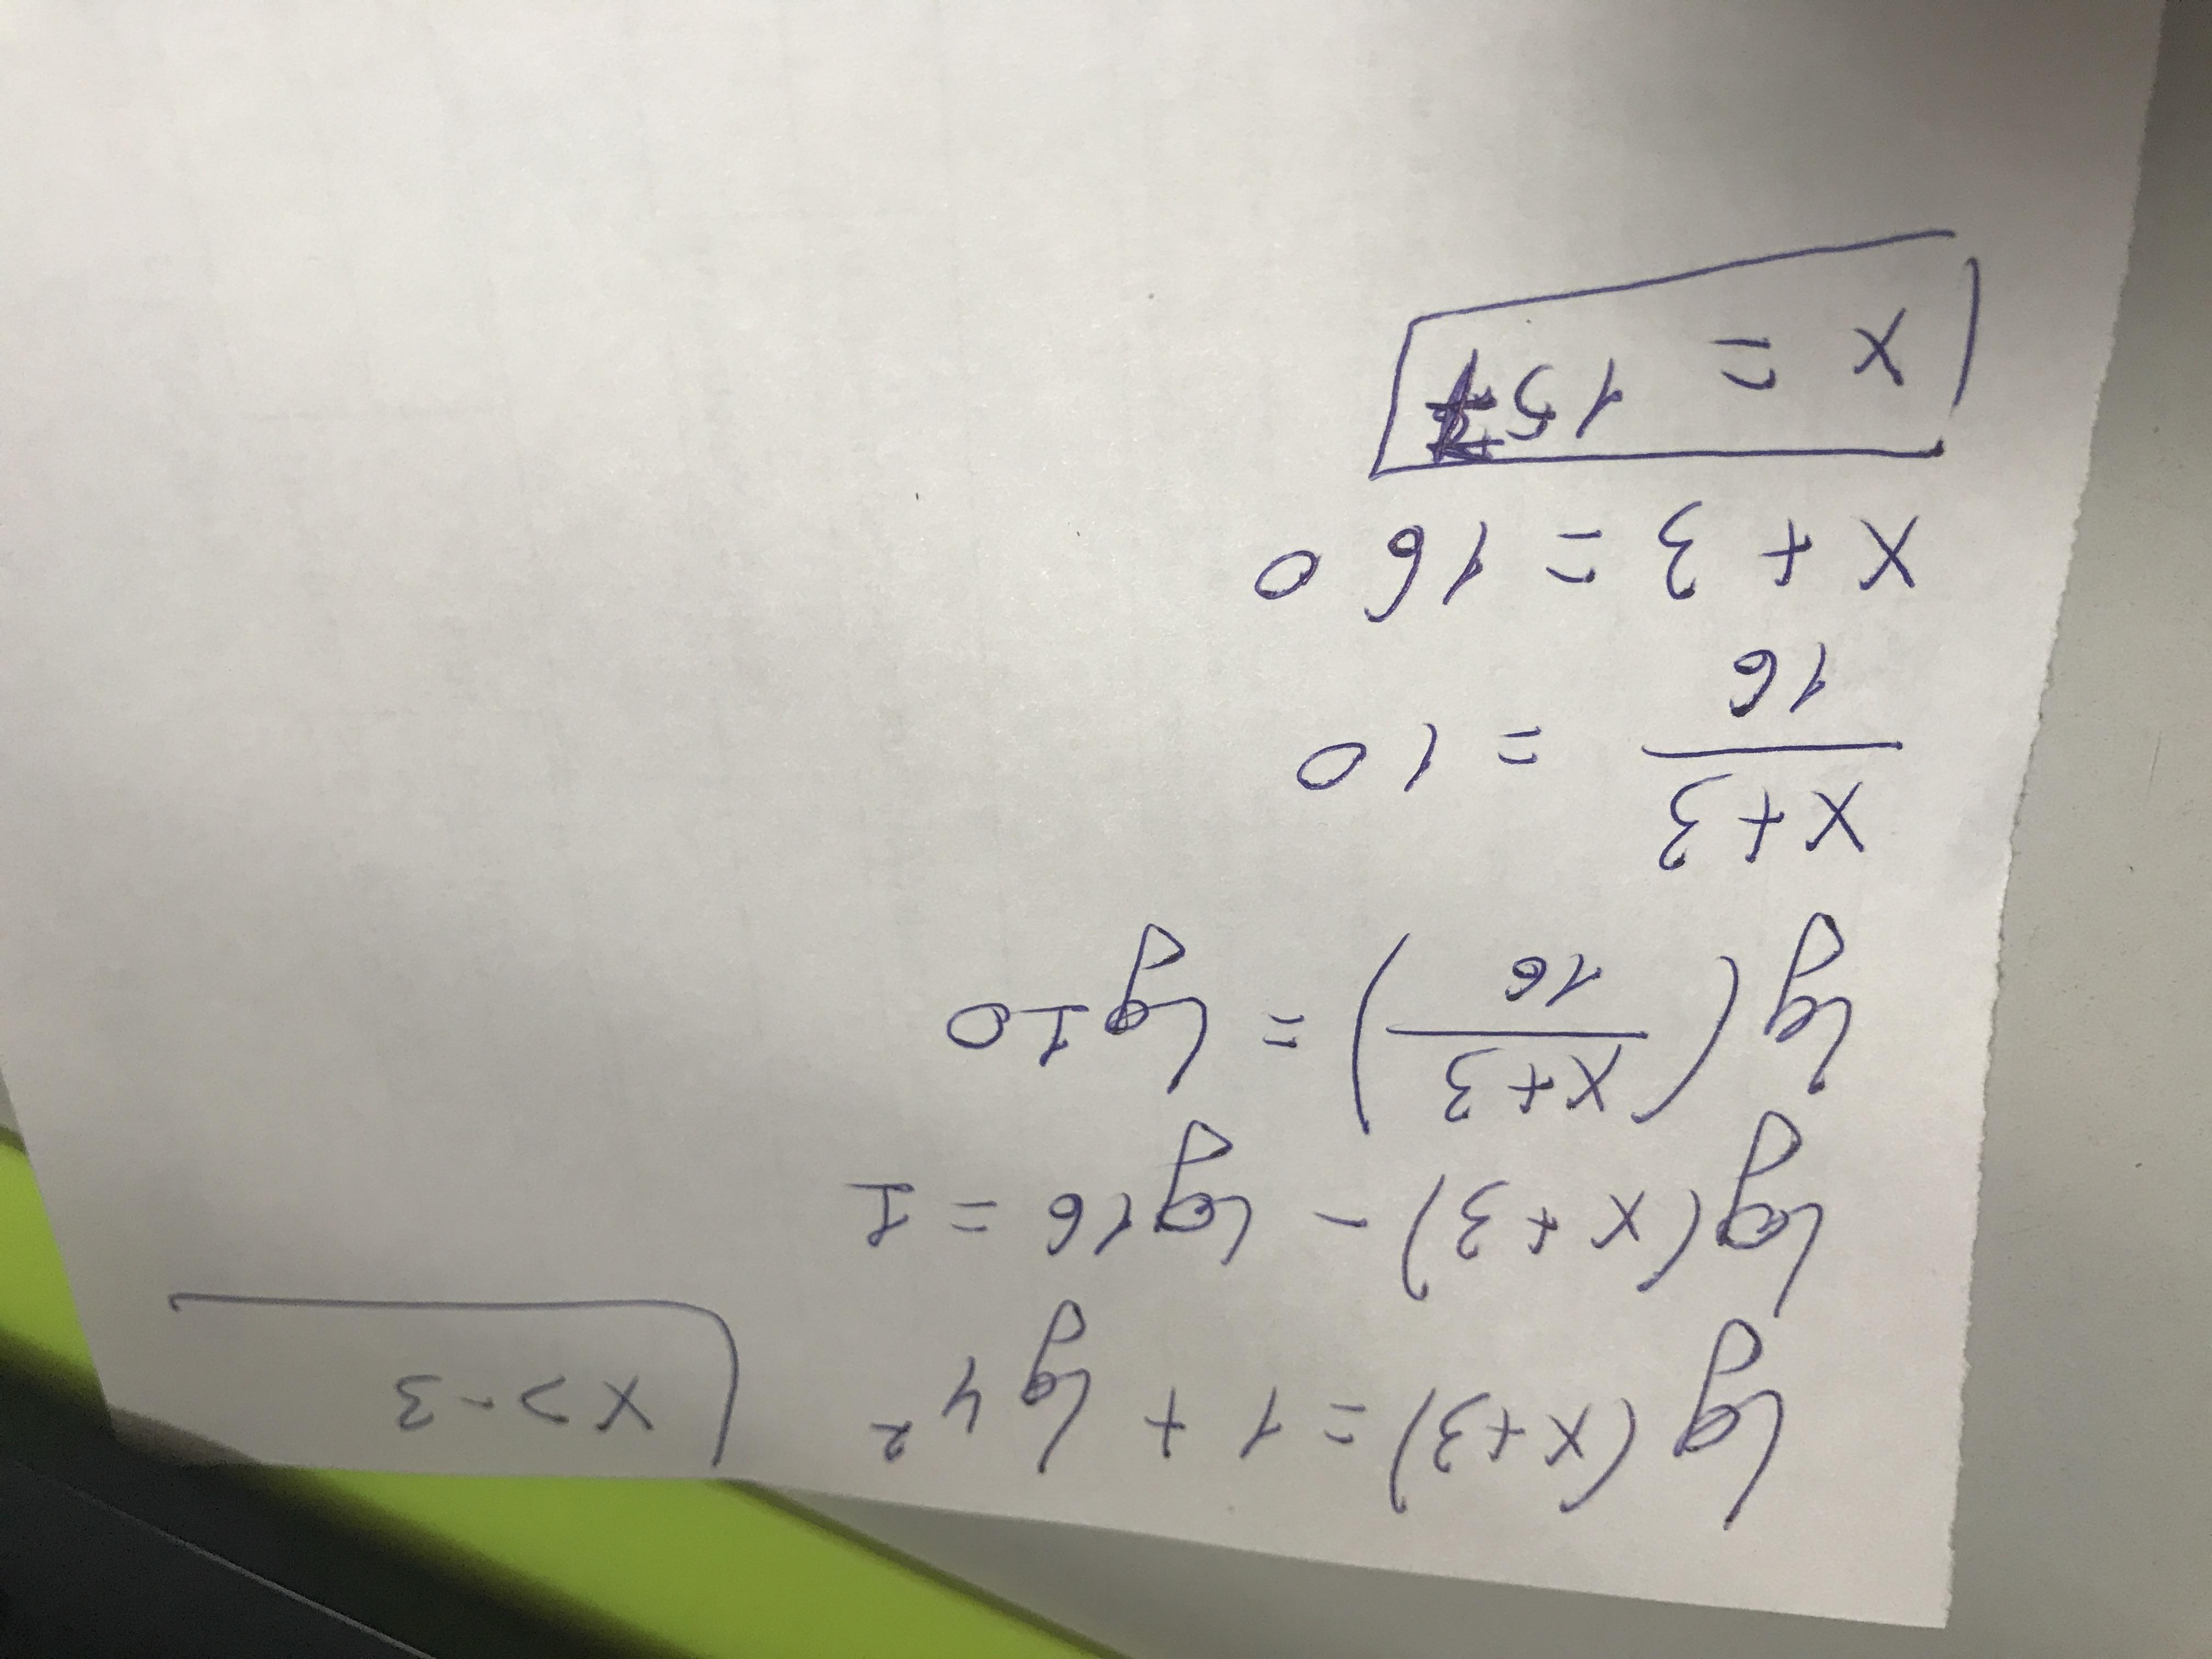 lg(x+3) = 1 + lg 4² x > -3
lg(x+3) - lg 16 = 1
lg(x+3/16) = lg 10
x+3/16 = 10
x + 3 = 160
x = 157